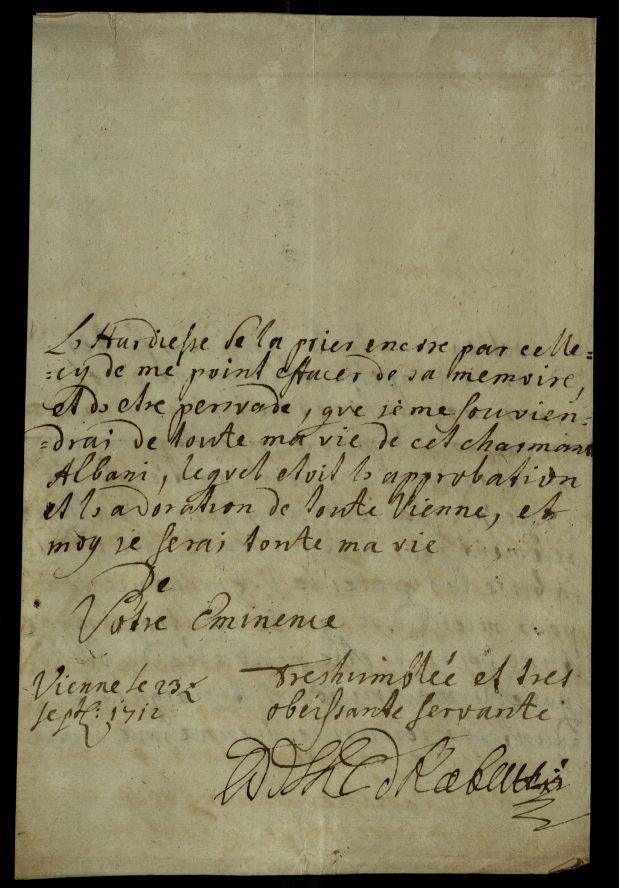 la Hardiesse de la prier encore par celle=
=cy de me point effacer de sa memoire,
et de etre persvade, qve je me souvien=
=drai de toute ma vie de cet charmant
Albani, leqvel etoit l'approbation
et l'adoration de toute Vienne, et
moy je serai toute ma vie
De
Votre Eminence
Vienne le 23
sept: 1712
treshumblée et tres
obeissante servante